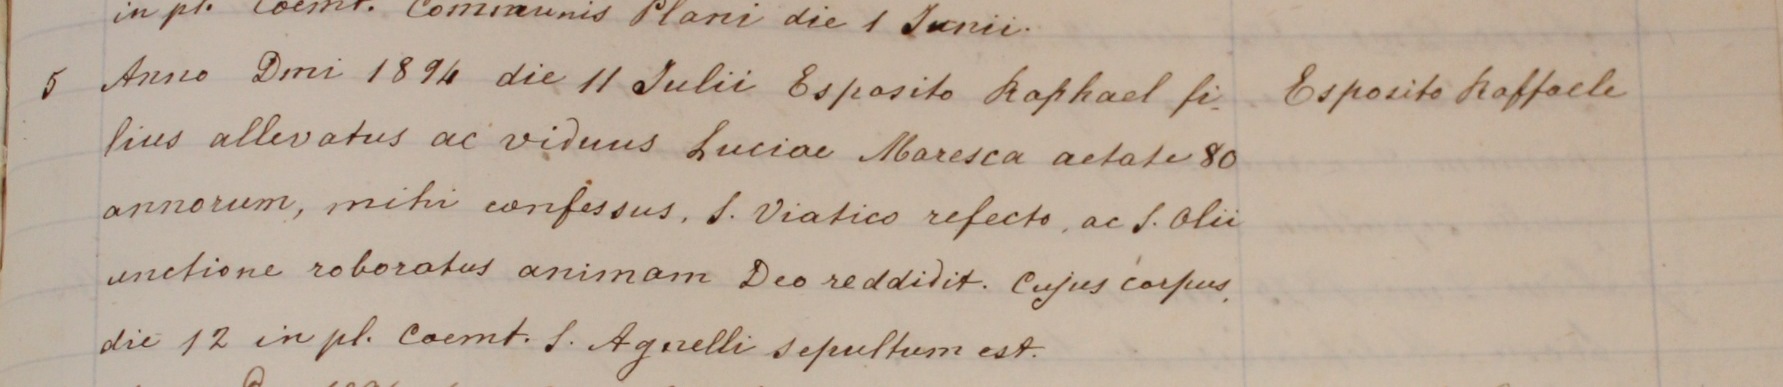 in pl. Coemt. Communis Plani die 1 Junii.
5 Anno Dmi 1894 die 11 Julii Esposito Raphael fi- Esposito Raffaele
lius allevatus ac viduus Luciae Maresca aetate 80
annorum, mihi confessus, S. Viatico refecto, ac S. Olii
unctione roboratus animam Deo reddidit. Cujus corpus,
die 12 in pl. Coemt. S. Agnelli sepultum est.